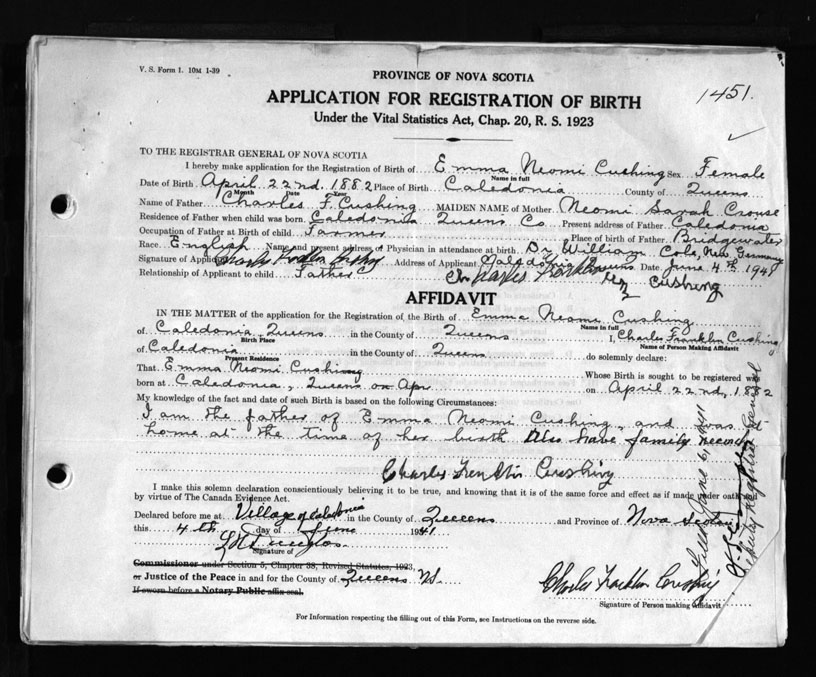 V. S. Form 1. 10M 1-39
1451.
PROVINCE OF NOVA SCOTIA
APPLICATION FOR REGISTRATION OF BIRTH
Under the Vital Statistics Act, Chap. 20, R. S. 1923
TO THE REGISTRAR GENERAL OF NOVA SCOTIA
I hereby make application for the Registration of Birth of Emma Neomi Cushing Sex Female
Name in full
Date of Birth April 22nd. 1882 Place of Birth Caledonia County of Queens
Month Date Year
Name of Father Charles F. Cushing MAIDEN NAME of Mother Neomi Sarah Crouse
Residence of Father when child was born Caledonia Queens Co Present address of Father Caledonia
Occupation of Father at Birth of child Farmer Place of birth of Father Bridgewater
Race English Name and present address of Physician in attendance at birth Dr William Cole, New Germany
Signature of Applicant Address of Applicant Caledonia Queens Date June 4th 1941
Relationship of Applicant to child Father Charles Franklin Cushing
AFFIDAVIT
IN THE MATTER of the application for the Registration of the Birth of Emma Neomi Cushing
Name in full
of Caledonia Queens in the County of Queens I, Charles Franklin Cushing
Birth Place Name of Person Making Affidavit
of Caledonia in the County of Queens do solemnly declare:
Present Residence
That Emma Neomi Cushing Whose Birth is sought to be registered was
born at Caledonia, Queens on Apr on April 22nd, 1882
My knowledge of the fact and date of such Birth is based on the following Circumstances:
I am the father of Emma Neomi Cushing, and was at
home at the time of her birth Also have family record
Charles Franklin Cushing
I make this solemn declaration conscientiously believing it to be true, and knowing that it is of the same force and effect as if made under oath
by virtue of The Canada Evidence Act.
Declared before me at Village of Caledonia in the County of Queens and Province of Nova Scotia
this 4th day of June 1941
Signature of
Commissioner under Section 5, Chapter 38, Revised Statutes, 1923,
or Justice of the Peace in and for the County of Queens NS.
If sworn before a Notary Public affix seal.
Charles Franklin Cushing
Signature of Person making Affidavit
For Information respecting the filling out of this Form, see Instructions on the reverse side.
Filed June 6, 1941
Deputy Registrar General